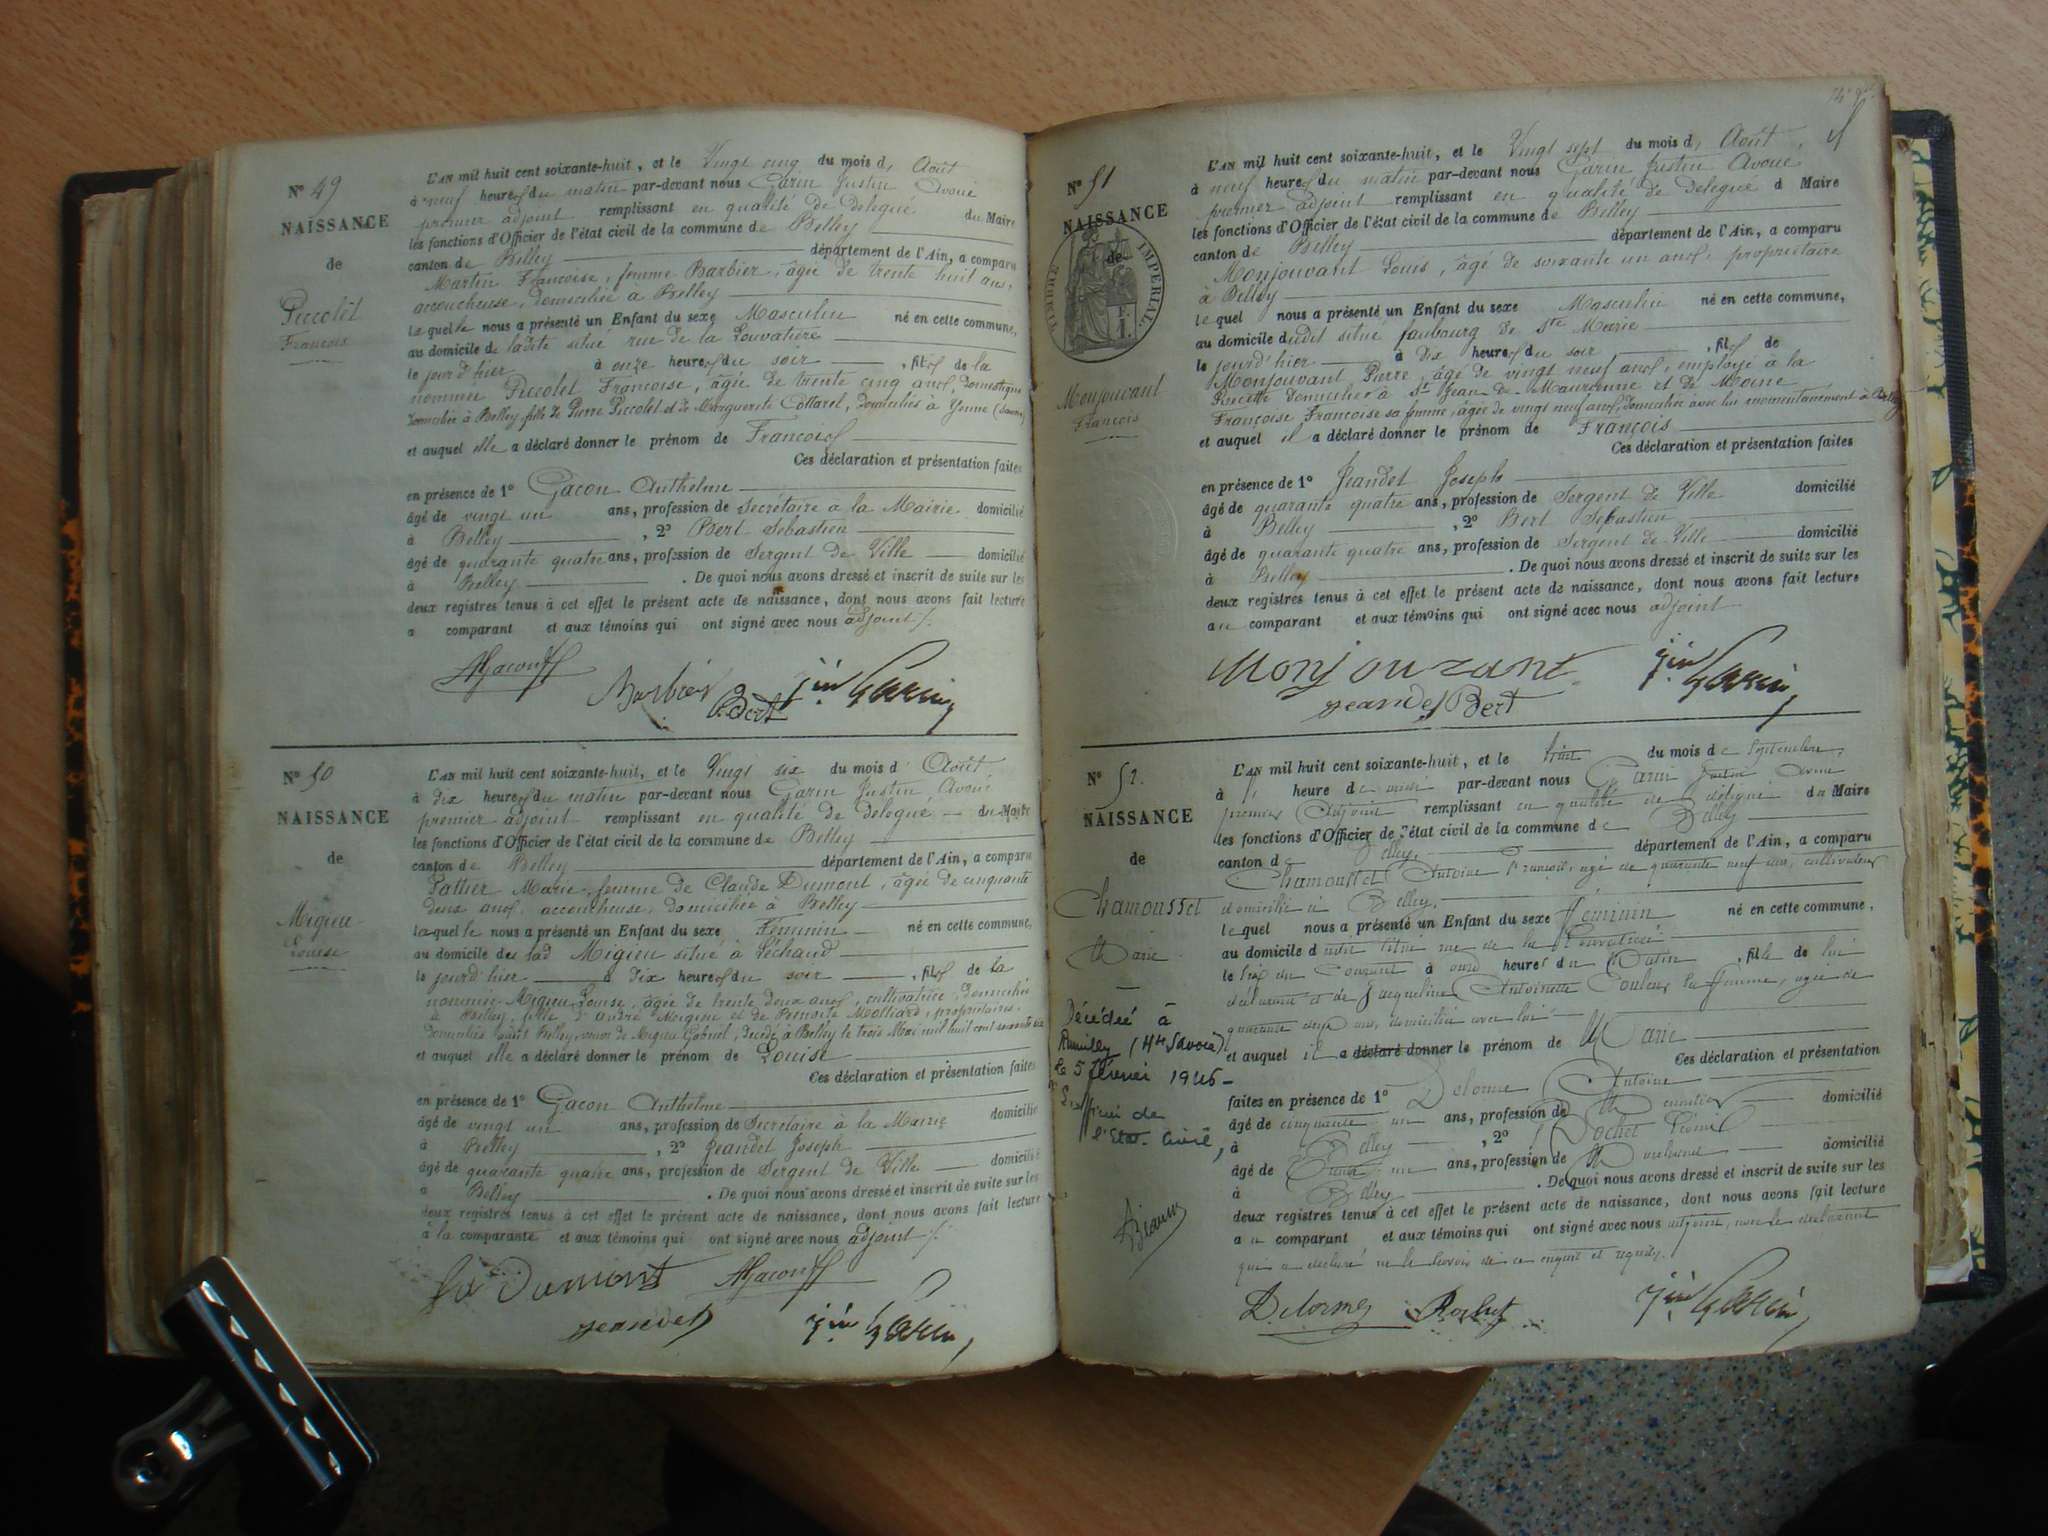 N° 49
NAISSANCE
de
Piccolet
François
L'AN mil huit cent soixante-huit, et le Vingt cinq du mois d' Août
à neuf heures du matin par-devant nous Garin Justin Avoué
premier adjoint remplissant en qualité de délégué du Maire
les fonctions d'Officier de l'état civil de la commune de Belley
canton de Belley département de l'Ain, a comparu
Martin Françoise, femme Barbier, âgée de trente huit ans,
accoucheuse, domiciliée à Belley
laquelle nous a présenté un Enfant du sexe Masculin né en cette commune,
au domicile de ladite situé rue de la Louvatière
le jourd'hier à onze heures du soir, fils de la
nommée Piccolet Françoise, âgée de trente cinq ans, domestique
domiciliée à Belley, fille de Pierre Piccolet et de Marguerite Cottarel, domiciliés à Yenne (Savoie)
et auquel elle a déclaré donner le prénom de François
Ces déclaration et présentation faites
en présence de 1° Gacon Anthelme
âgé de vingt un ans, profession de Secrétaire à la Mairie domicilié
à Belley, 2° Bert Sébastien
âgé de quarante quatre ans, profession de Sergent de Ville domicilié
à Belley. De quoi nous avons dressé et inscrit de suite sur les
deux registres tenus à cet effet le présent acte de naissance, dont nous avons fait lecture
a comparant et aux témoins qui ont signé avec nous adjoint /.
AGacon
Barbier
Bert
Jin Garin
N° 50
NAISSANCE
de
Migieu
Louise
L'AN mil huit cent soixante-huit, et le Vingt six du mois d' Août
à dix heures du matin par-devant nous Garin Justin Avoué
premier adjoint remplissant en qualité de délégué du Maire
les fonctions d'Officier de l'état civil de la commune de Belley
canton de Belley département de l'Ain, a comparu
Marie femme de Claude Dumont, âgée de cinquante
deux ans, accoucheuse, domiciliée à Belley
laquelle nous a présenté un Enfant du sexe Féminin né en cette commune,
au domicile de lad Migieu situé à Péchaud
le jourd'hier à dix heures du soir, fils de la
nommée Migieu Louise, âgée de trente deux ans, cultivatrice, domiciliée
à Belley, fille d'André Migieu et de Benoite Molliard, propriétaires,
domiciliés audit Belley, veuve de Migieu Gabriel, décédé à Belley le trois Mai mil huit cent soixante six
et auquel elle a déclaré donner le prénom de Louise
Ces déclaration et présentation faites
en présence de 1° Gacon Anthelme
âgé de vingt un ans, profession de Secrétaire à la Mairie domicilié
à Belley, 2° Jeandet Joseph
âgé de quarante quatre ans, profession de Sergent de Ville domicilié
a Belley. De quoi nous avons dressé et inscrit de suite sur les
deux registres tenus à cet effet le présent acte de naissance, dont nous avons fait lecture
à la comparante et aux témoins qui ont signé avec nous adjoint /.
fe Dumont
AGacon
Jeandet
Jin Garin
N° 51
NAISSANCE
de
TIMBRE IMPERIAL
Monjouvant
François
L'AN mil huit cent soixante-huit, et le Vingt sept du mois d' Août
à neuf heures du matin par-devant nous Garin Justin Avoué
premier adjoint remplissant en qualité de délégué d Maire
les fonctions d'Officier de l'état civil de la commune de Belley
canton de Belley département de l'Ain, a comparu
Monjouvant Louis, âgé de soixante un ans, propriétaire
à Belley
lequel nous a présenté un Enfant du sexe Masculin né en cette commune,
au domicile dudit situé faubourg de Ste Marie
le jourd'hier à dix heures du soir, fils de
Monjouvant Pierre, âgé de vingt neuf ans, employé à la
Recette domicilié à St Jean de Maurienne et de Moine
Françoise Françoise sa femme, âgée de vingt neuf ans, domiciliée avec lui momentanément à Belley
et auquel il a déclaré donner le prénom de François
Ces déclaration et présentation faites
en présence de 1° Jeandet Joseph
âgé de quarante quatre ans, profession de Sergent de Ville domicilié
à Belley, 2° Bert Sébastien
âgé de quarante quatre ans, profession de Sergent de Ville domicilié
à Belley. De quoi nous avons dressé et inscrit de suite sur les
deux registres tenus à cet effet le présent acte de naissance, dont nous avons fait lecture
au comparant et aux témoins qui ont signé avec nous adjoint
Monjouvant
Jeandet Bert
Jin Garin
N° 52.
NAISSANCE
de
Chamousset
Marie
Décédée à
Rumilly (Hte Savoie)
le 5 février 1946
L'officier de
l'Etat Civil,
L'AN mil huit cent soixante-huit, et le du mois de Septembre,
à heure de par-devant nous Garin Justin Avoué
premier Adjoint remplissant en qualité de délégué du Maire
les fonctions d'Officier de l'état civil de la commune de Belley
canton de Belley département de l'Ain, a comparu
Chamousset Antoine François, âgé de quarante neuf ans, cultivateur
domicilié à Belley
lequel nous a présenté un Enfant du sexe féminin né en cette commune,
au domicile dudit situé rue de la Louvatière
le six du courant à onze heures du Matin, fille de lui
déclarant et de Jacqueline Antoinette sa femme, âgée de
quarante deux ans, domiciliée avec lui
et auquel il a déclaré donner le prénom de Marie
Ces déclaration et présentation
faites en présence de 1° Delorme Antoine
âgé de cinquante un ans, profession de Menuisier domicilié
à Belley, 2° Rochet
âgé de ans, profession de domicilié
à Belley. De quoi nous avons dressé et inscrit de suite sur les
deux registres tenus à cet effet le présent acte de naissance, dont nous avons fait lecture
au comparant et aux témoins qui ont signé avec nous adjoint, non le déclarant
qui a déclaré ne le savoir de ce enquis et requis.
Delorme
Rochet
Jin Garin